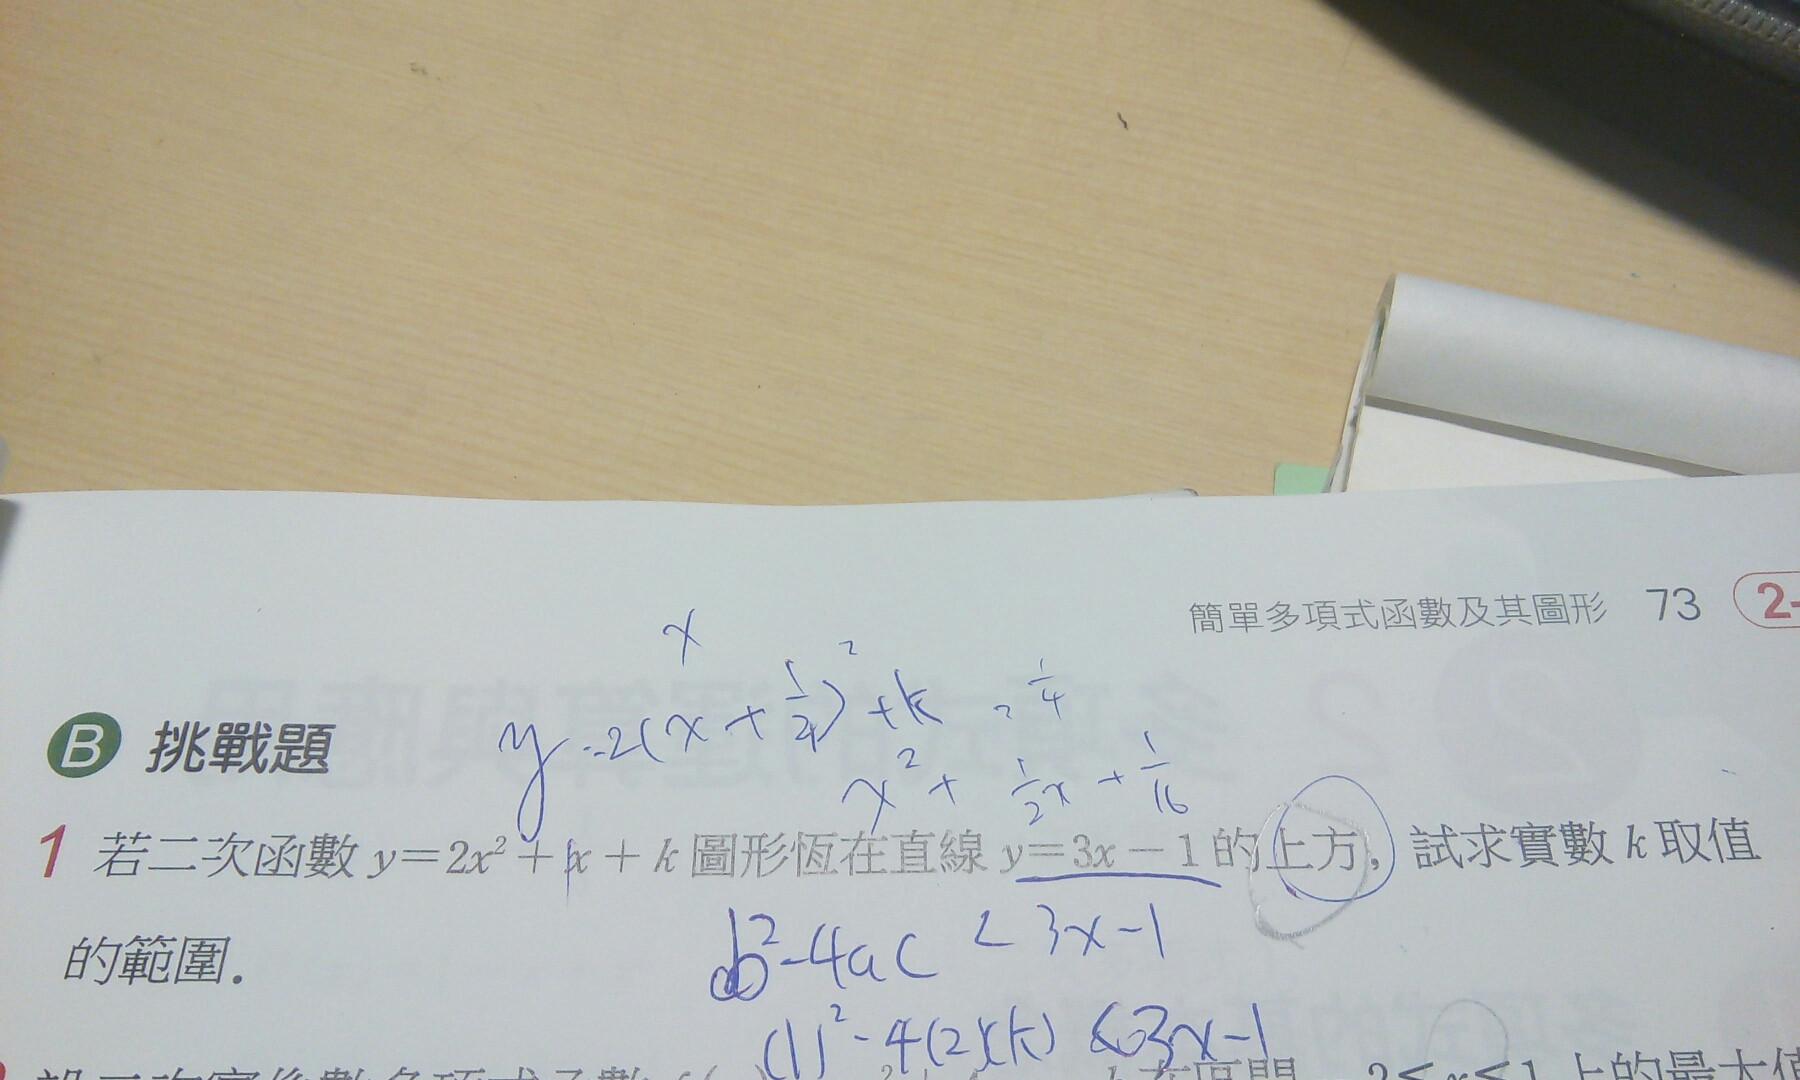 簡單多項式函數及其圖形 73 2-
x
y=2(x+1/4)²+k
1/4
x²+1/2x+1/16
B 挑戰題
1 若二次函數 y=2x²+x+k 圖形恆在直線 y=3x-1 的上方，試求實數 k 取值
的範圍.
b²-4ac <3x-1
(1)²-4(2)(k) <3x-1